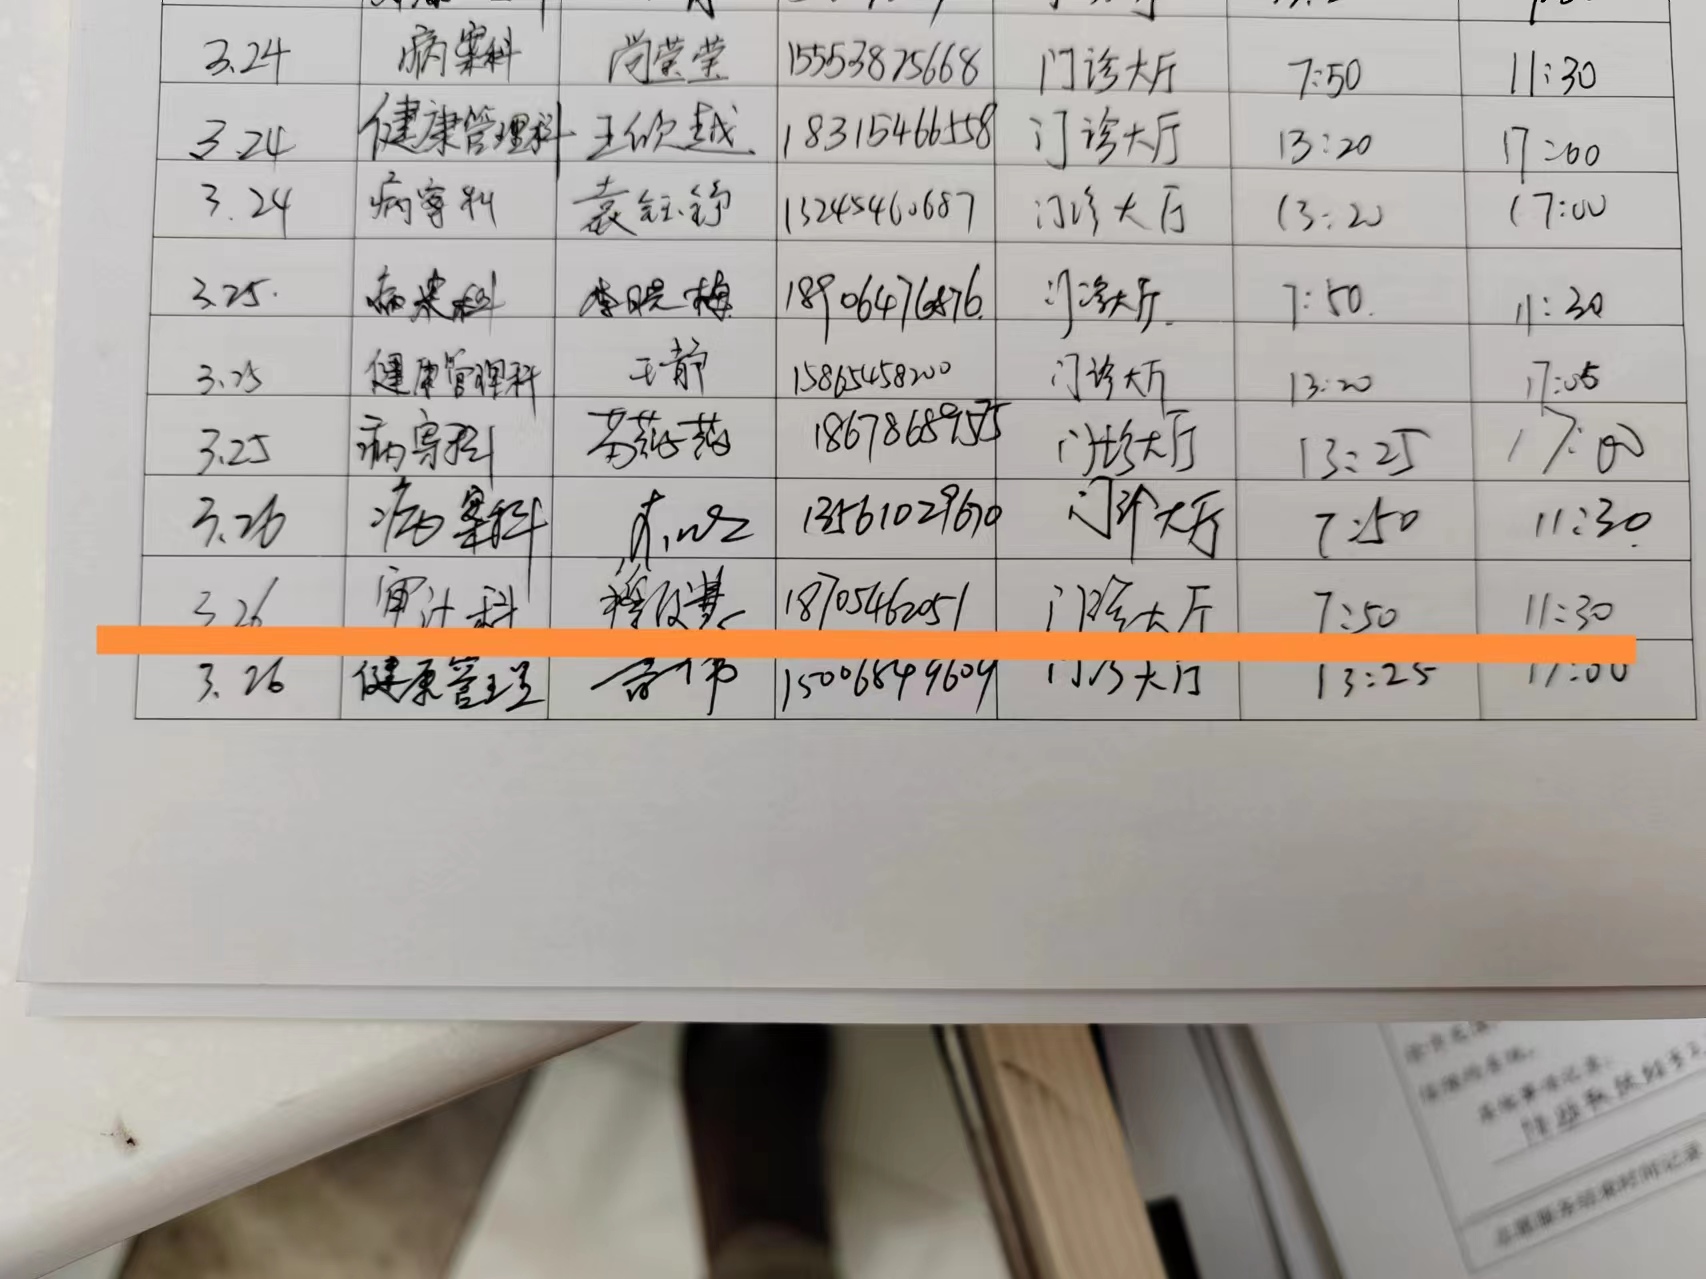 3.24 病案科 尚荣荣 15553825668 门诊大厅 7:50 11:30
3.24 健康管理科 王欣越 18315466558 门诊大厅 13:20 17:00
3.24 病案科 袁钰铮 13245460687 门诊大厅 13:20 17:00
3.25. 病案科 李晓梅 18906476876 门诊大厅. 7:50. 11:30
3.25 健康管理科 王静 15865458200 门诊大厅 13:20 17:05
3.25 病案科 18678689575 门诊大厅 13:25 17:00
3.26 病案科 13561029670 门诊大厅 7:50 11:30.
3.26 审计科 18705462051 门诊大厅 7:50 11:30
3.26 健康管理 15006849609 门诊大厅 13:25 17:00
志愿服务结束时间记录